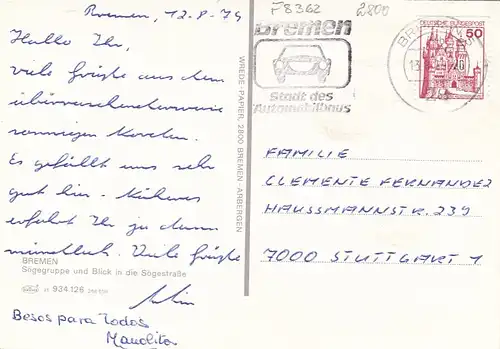 Bremen, 12.8.79
Hallo Ihr,
viele Grüße aus dem
überraschenderweise
sonnigen Norden.
Es gefällt uns sehr
gut hier. Näheres
erfahrt Ihr ja dann
mündlich. Viele Grüße
BREMEN
Sögegruppe und Blick in die Sögestraße
934 126
Besos para todos
Manolito
WREDE-PAPIER, 2800 BREMEN-ARBERGEN
F8362 2800
Bremen
Stadt des
Automobilbaus
DEUTSCHE BUNDESPOST
50
FAMILIE
CLEMENTE FERNANDEZ
HAUSSMANNSTR. 239
7000 STUTTGART 1